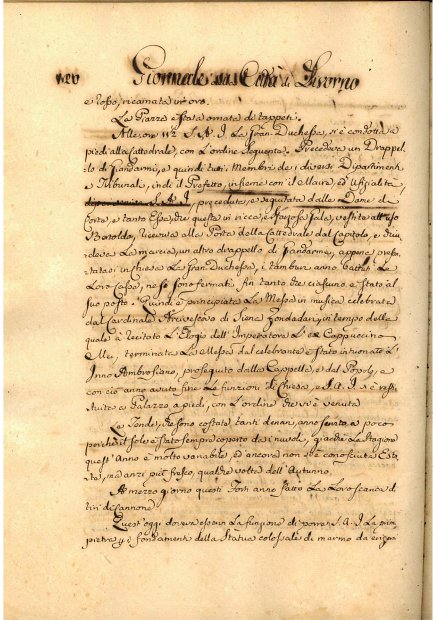 Giornale della Città di Livorno
e rosso, ricamata in oro.
La Piazza è stata ornata di tappeti.
Alle ore 11½ S. A. I. La Gran. Duchessa, si è condotta a
piedi alla Cattedrale, con L'ordine seguente. Precedeva un Drappel-
lo di Giandarmi, e quindi tutti i Membri de i diversi Dipartimenti
e Tribunali, indi il Prefetto, insieme con il Maire, ed Ufizialità
S. A. I. preceduta, e seguitata dalle Dame di
Corte, e tanto Esse, che questa in ricca, e sfarzosa Gala, vestite all'uso
ricevuta alle Porte della Cattedrale dal Capitolo, e chiu-
deva La marcia, un altro drappello di Giandarmi, appena presen-
tatasi in chiesa La Gran. Duchessa, i tamburi anno battuti Le
Loro Casse, ne si sono fermati fin tanto che ciascuno è stato al
suo posto. Quindi è principiata La Messa in musica celebrata
dal Cardinale Arcivescovo di Siena Zondadari, in tempo della
quale à recitato L'Elogio dell'Imperatore L'Ex Cappuccino
terminata La Messa dal celebrante è stato intuonato L'
Inno Ambrosiano, proseguito dalla Cappella, e dal Popolo, e
con ciò anno avuto fine Le funzioni di Chiesa, e S. A. I. si è resti-
tuita a Palazzo a piedi, con L'ordine che vi è venuta
Le Tende, che sono costate tanti denari, anno servito a poco
poichè il sole è stato sempre coperto da i nuvoli, giacchè La Stagione
quest'Anno è molto variabile, ed ancora non si è conosciuta Esta-
te, ma anzi più fresco, qualche volta dell'Autunno.
A mezzo giorno questi Forti anno fatto La Loro scarica di
tiri di Cannone
Quest'oggi doveva esservi La funzione di porre S. A. I. La prima
pietra p i fondamenti della Statua colossale di marmo da erigersi